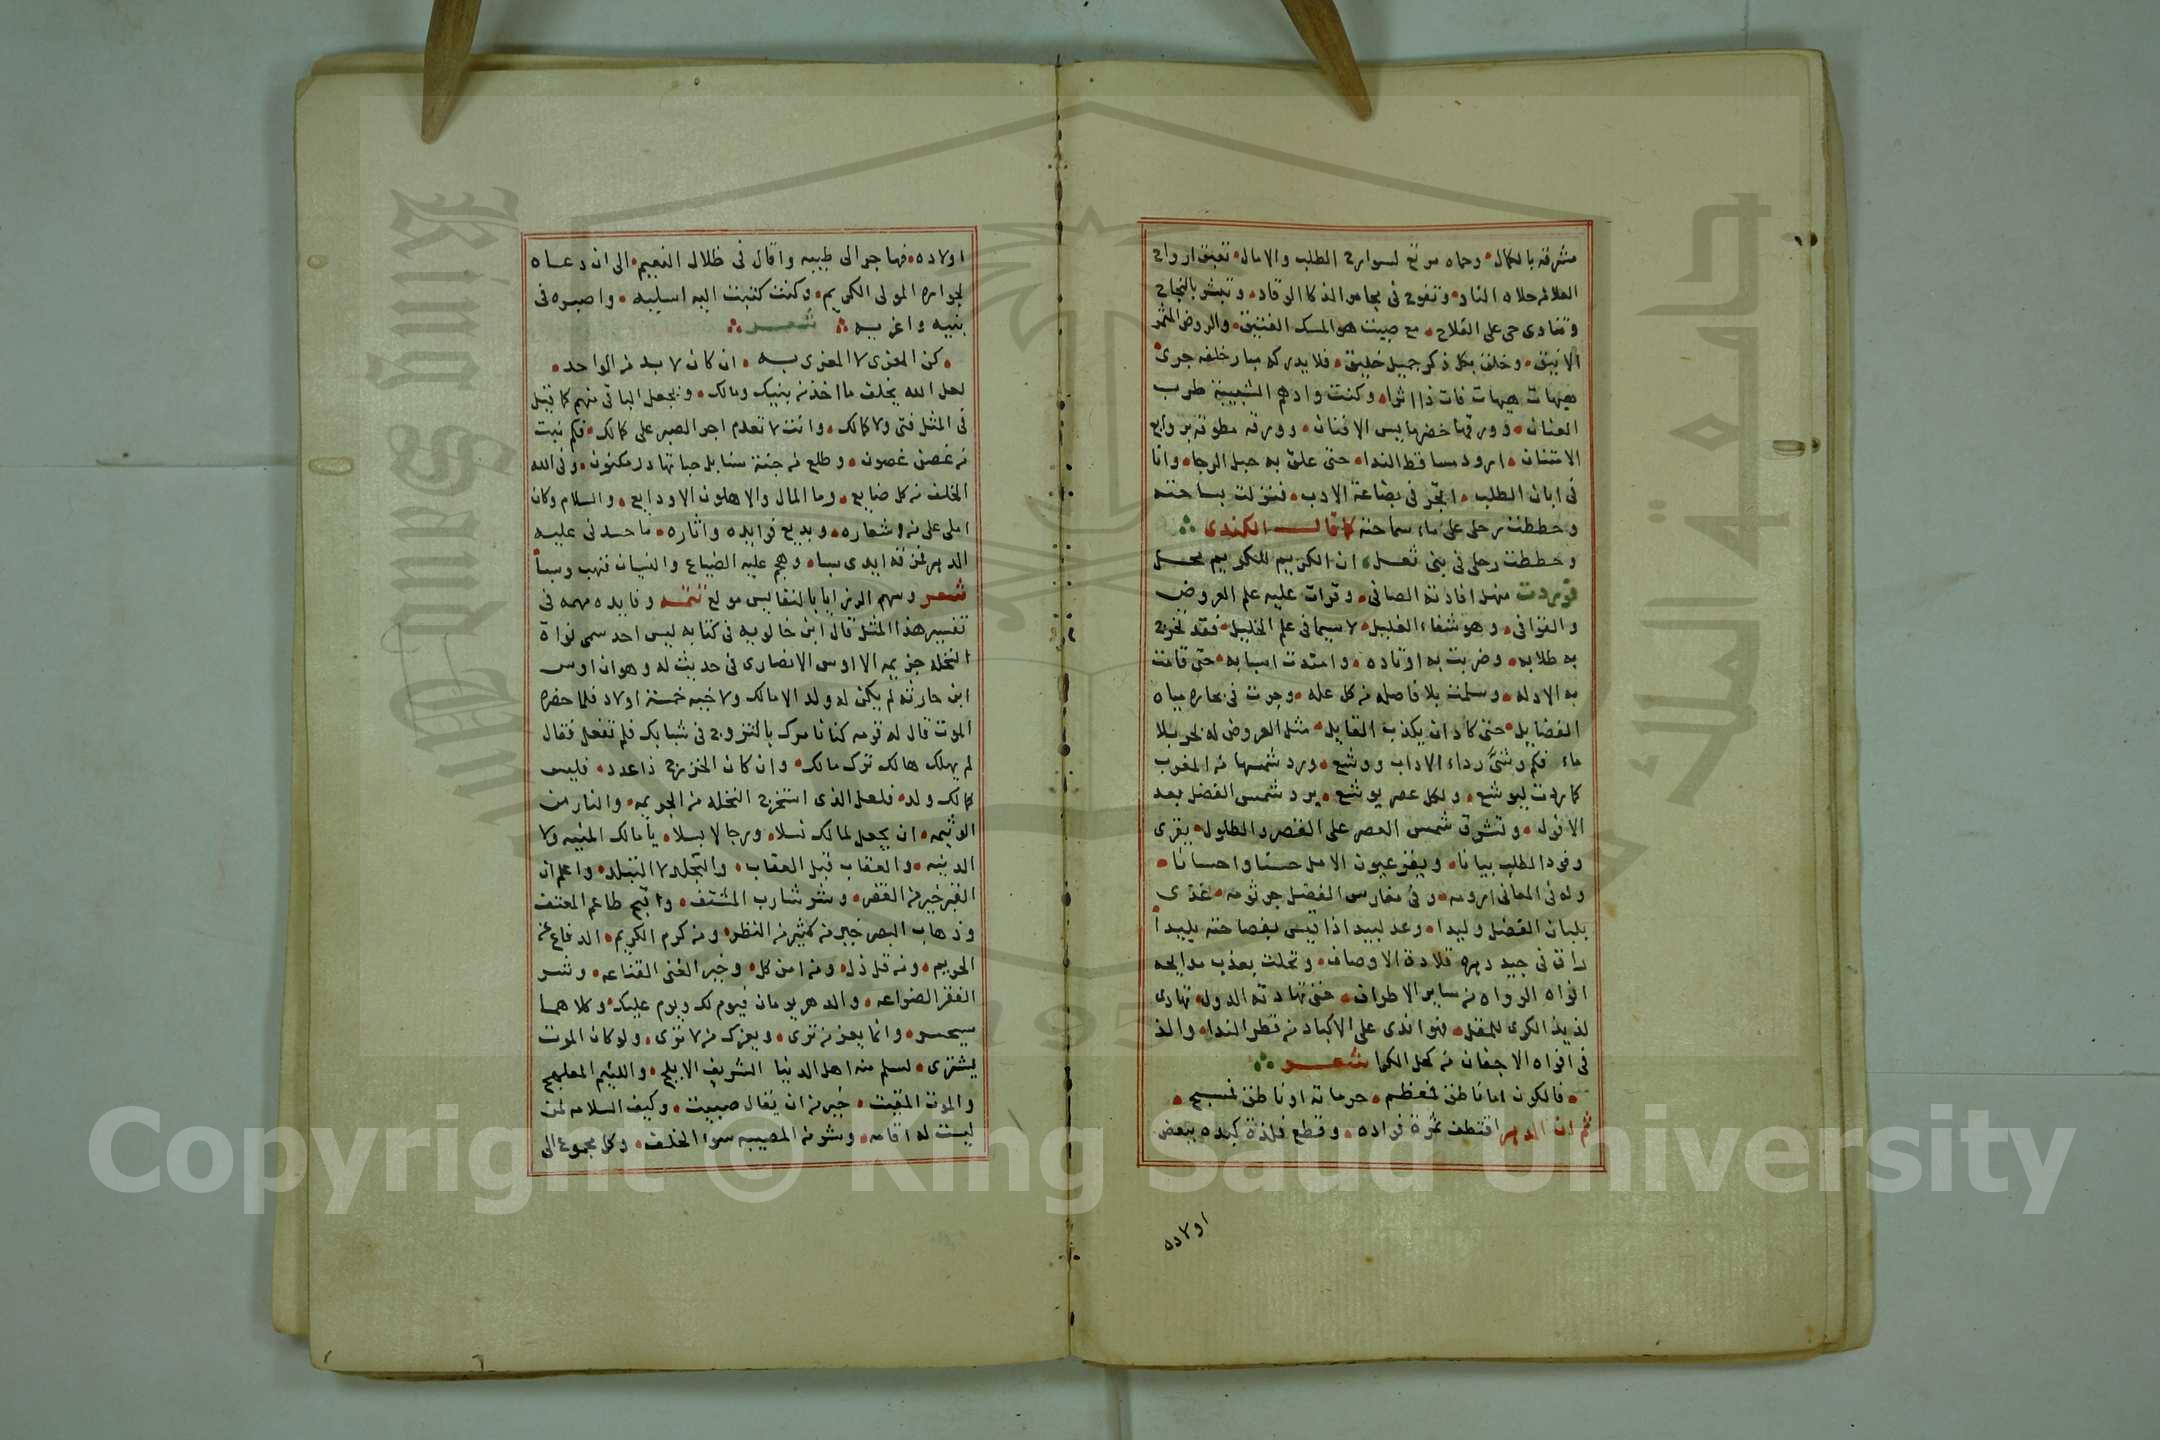 مشرقة بالكمال وحماه مرتع لسوارح الطلب والامال تعبق ارواح
وتنادى حى على الفلاح مع صيت هو المسك الفتيق والروض المثمر
الانيق وخلق بكل ذكر جميل خليق فلا يدركه مبار خلفه جرى
هيهات هيهات فات ذا اثوا وكنت وادهم الشبيبة طرب
العنان وورقها خضر ما يبس الافنان وورقه مطوقة بروايع
الامتنان ارود مساقط الندا حتى علق به حبل الرجا وانا
فى ابان الطلب اتجر فى بضاعة الادب فنزلت بساحته
وحططت رحلى على ماء سماحته كما قال الكندى
وحططت رحلى فى بنى ثعل ان الكريم للكريم محل
فوردت منهل افادته الصافى وقرات عليه علم العروض
والقوافى وهو شفاء الغليل لا سيما فى علم الخليل فقد تخرج
به طلابه وضربت به اوتاده وامتدت اسبابه حتى قامت
به الادله وسلمت بلا فاصله من كل عله وجرت فى بحاره مياه
الفضايل حتى كاد ان يكذب القايل مثل العروض له بحر بلا
ماء فكم وشى رداء الاداب ووشع ورد شمسها من المغرب
كما ردت ليوشع ولكل عصر يوشع يرد شمس الفضل بعد
الافول وتشرق شمس العصر على القصر والطلول يقرى
وفود الطلب بيانا ويقر عيون الامل حسنا واحسانا
وله فى المعالى ارومه وفى مغارس الفضل جرثومه غذى
بلبان الفضل وليدا وعد لبيدا اذا قيس بفصاحته بليدا
راق فى جيد دهره قلادة الاوصاف وتحلت بعذب مدايحه
افواه الرواه من ساير الاطراف حتى تهادته الدول تهادى
لذيذ الكرى للمقل فهو اندى على الاكباد من قطر الندا والذ
فى افواه الاجفان من كحل الكرا شعر
فالكون اما ناطق فمعظم حرماته او ناطق فمسبح
ثم ان الدهر اقتطف ثمرة فواده وقطع فلذة كبده ببعض
اولاده
اولاده فهاجر الى طيبه واقال فى ظلال النعيم الى ان دعاه
لجواره المولى الكريم وكنت كتبت اليه اسليه واصبره فى
بنيه واعزيه شعر
كن المعزى لا المعزى به ان كان لا بد من الواحد
لعل الله يخلف ما اخذ من بنيك ومالك ويجعل الباقى منهم كما قيل
فى المثل فتى ولا كمالك وانت لا تعدم اجر الصبر على كمالك فكم نبت
من غصن غصون وطلع من جنة سنابل حباتها در مكنون وفى الله
الخلف من كل ضايع وما المال والاهلون الا ودايع والسلام وكان
املى على من اشعاره وبديع فوايده واثاره ما حسدنى عليه
الدهر فمزقه ايدى سبا وهجم عليه الضياع والنسيان فنهب وسبا
شعر وسهم الرزايا بالنفايس مولع تتمه وفايده مهمه فى
تفسير هذا المثل قال ابن خالويه فى كتابه ليس احد سمى نواة
النخله جريمه الا اوس الانصارى فى حديث له وهو ان اوس
ابن حارثه لم يكن له ولد الا مالك ولاخيه خمسة اولاد فلما حضره
الموت قال له قومه كنا نامرك بالتزوج فى شبابك فلم تفعل فقال
لم يهلك هالك ترك مالك وان كان الخزرج ذا عدد فليس
لمالك ولد فلعل الذى استخرج النخله من الجريمه والنار من
الوثيمه ان يجعل لمالك نسلا ورجالا بسلا يا مالك المنيه ولا
الدنيه والعقاب قبل العقاب والتجلد لا التبلد واعلم ان
القبر خير من الفقر وشر شارب المشتف واقبح طاعم المقتف
وذهاب البصر خير من كثير من النظر ومن كرم الكريم الدفاع عن
الحريم ومن قل ذل ومن امن كل وخير الغنى القناعه وشر
الفقر الضراعه والدهر يومان فيوم لك ويوم عليك وكلاهما
سيحسر وانما يعز من ترى ويعزك من لا ترى ولو كان الموت
يشترى لسلم منه اهل الدنيا الشريف الابلج واللئيم المعلهج
والموت المقيت خير من ان يقال هبيت وكيف السلامه لمن
ليست له اقامه وشر من المصيبه سوء الخلف وكل مجموع الى